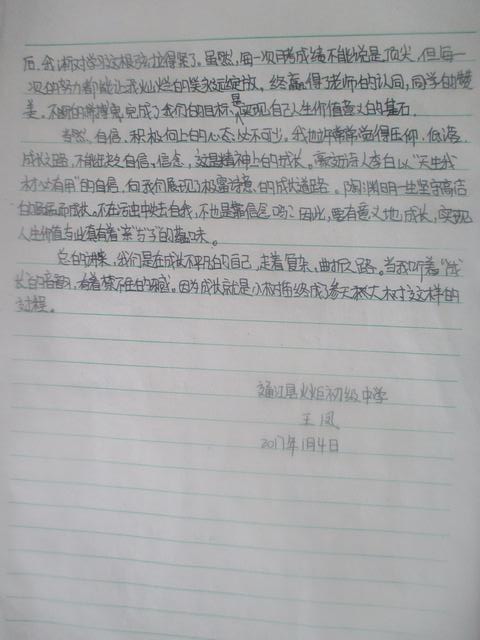 后,我渐对学习这根弦拉得紧了。虽然,每一次月考成绩不能说是顶尖,但每一
次的努力都能让我灿烂的笑永远绽放,终赢得了老师的认同,同学的赞
美。不断的完成了我们的目标是实现自己人生价值意义的基石。
当然,自信,积极向上的心态必不可少。我也许常常觉得压抑,低落,
成长之路,不能缺乏自信,信念,这是精神上的成长。诗人李白以“天生我
材必有用”的自信,向我们展现了极富诗意的成长道路。陶渊明一生坚守高洁
的成长。不在污浊中失去自我,不也是靠信念吗?因此,要有意义地成长,实现
人生价值也真有着的意味。
总的讲来,我们是在成长不平凡的自己,走着复杂,曲折之路。当我听着“成
长”的音韵,有着禁不住的感。因为成长就是小树苗终成了参天树大树这样的
过程。
通江县火炬初级中学
王凤
2017年1月4日